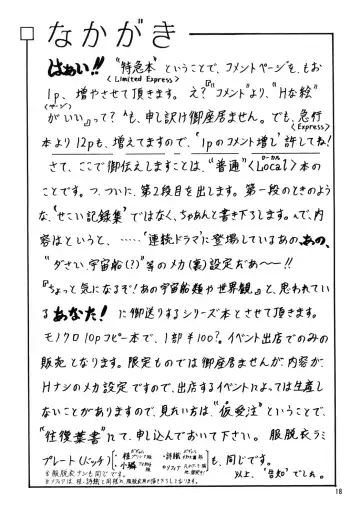 なかがき
はぁい!! "特急本"ということで、コメントページを、もお
(Limited Express)
1p、増やさせて頂きます。え?『"コメント"より、"Hな絵"
(ページ)
がいい』って? ^も、申し訳H御座居ません。でも、急行
(Express)
本より12pも、増えてますので、'1pのコメント増し'許してね!
さて、ここで御伝えしますことは、"普通"<Local>本の
ローカル
ことです。つ、ついに、第2段目を出します。第一段のときのよう
な、'せこい記録集'ではなく、ちゃあんと書き下ろします。^で、内
容はというと、……'連続ドラマ'に登場しているあの、あの、
"ダさい宇宙船(?)"等のメカ(裏)設定だあ〜〜!!
『ちょっと気になるぞ!あの宇宙船類や世界観』と、思われてい
るあなた!に御送りするシリーズ本とさせて頂きます。
モノクロ10pコピー本で、1部¥100?。イベント出店でのみの
販売となります。限定ものでは御座居ませんが、内容が、
Hナシのメカ設定ですので、出店するイベントによっては生産し
ないことがありますので、見たい方は、"仮受注"ということで、
"往復葉書"にて、申し込んでおいて下さい。服脱衣ラミ
プレート(バッチ)
・桂
・小鱗
・詩織
・ソフィア
も、同じです。
※服脱衣ナシも同じです。
以上、'告知'でした。
18